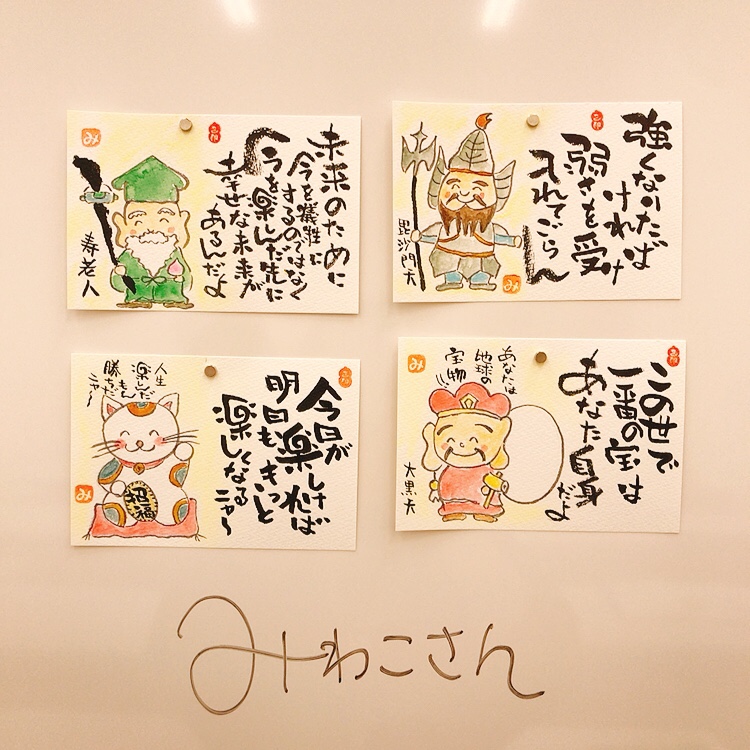 未来のために
今を犠牲に
するのではなく
今を楽しんだ先に
幸せな未来が
あるんだよ
寿老人
み
強くなりた
ければ
弱さを受け
入れてごらん
毘沙門天
み
今日が
楽しければ
明日もきっと
楽しくなる
ニャ〜
人生
楽しんだ
もん
勝ちだ
ニャ〜
招福
み
この世で
一番の宝は
あなた自身
だよ
あなたは
地球の
宝物!!
大黒天
み
みわこさん